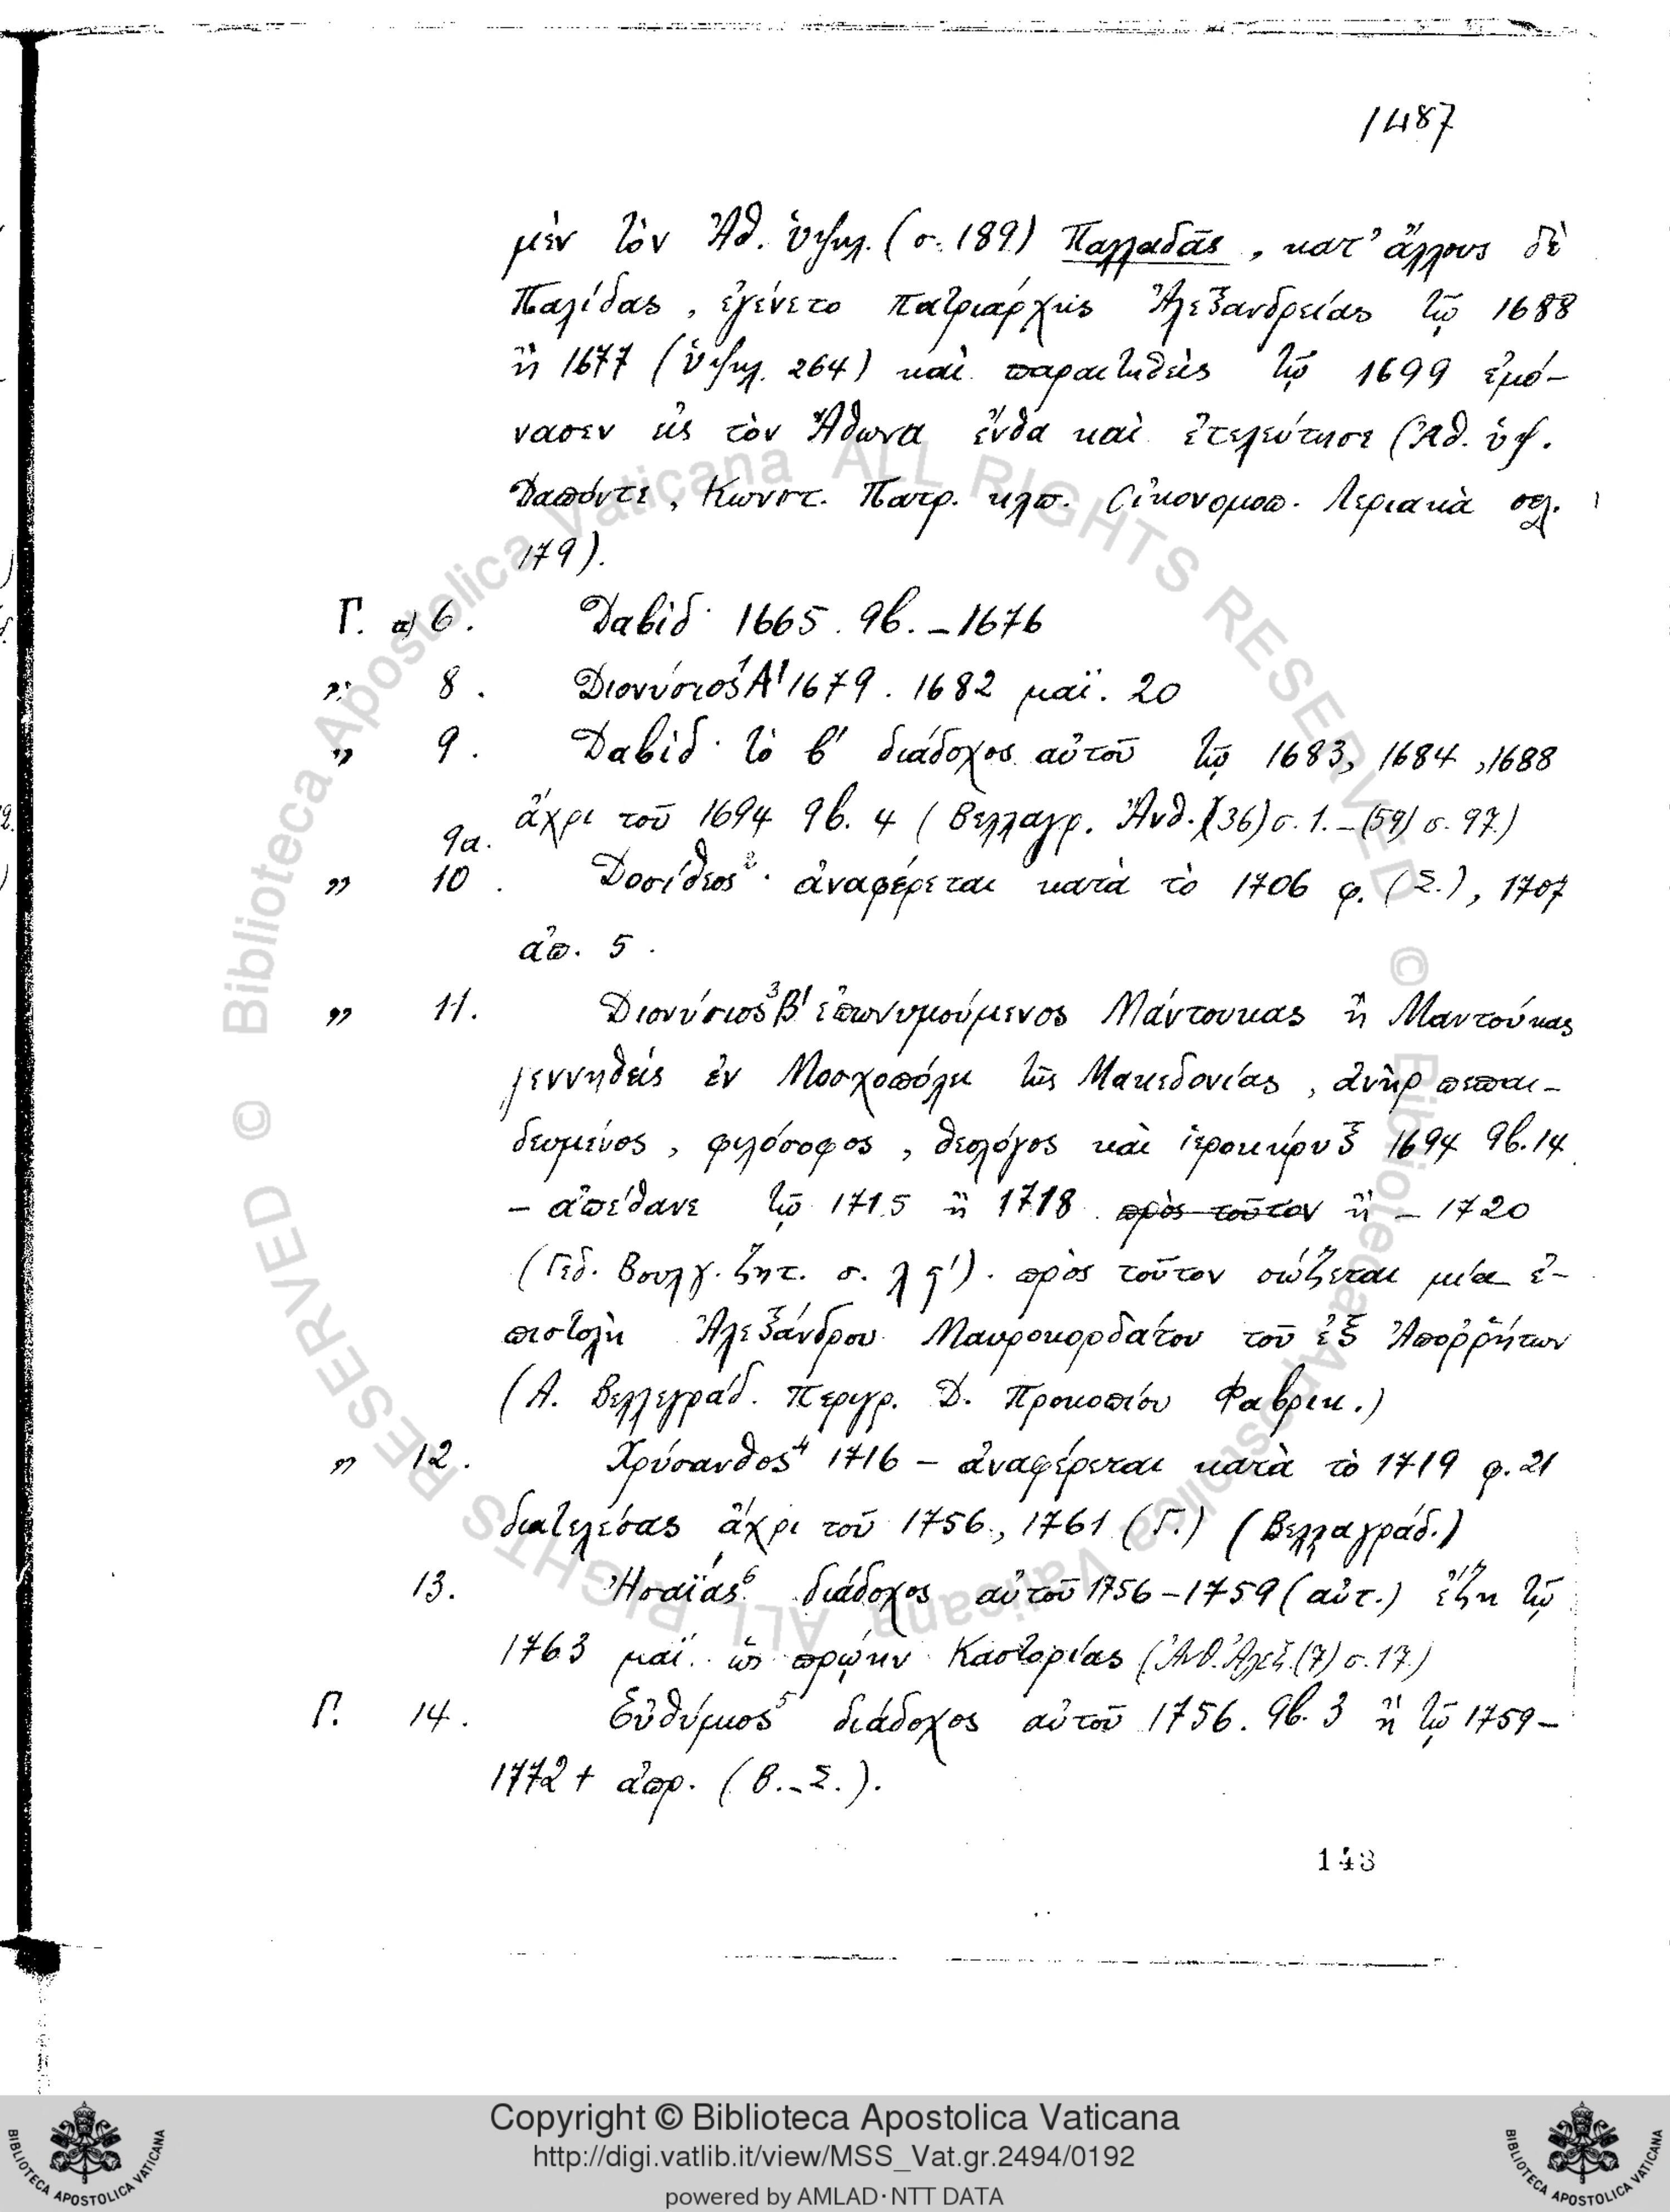 1487
μὲν τὸν Ἀθ. ὑψηλ. (σ. 189) Παλλαδᾶς, κατ' ἄλλους δὲ
Παλίδας, ἐγένετο πατριάρχης Ἀλεξανδρείας τῷ 1688
ἢ 1677 (ὑψηλ. 264) καὶ παραιτηθεὶς τῷ 1699 ἐμό-
νασεν εἰς τὸν Ἄθωνα ἔνθα καὶ ἐτελεύτησε (Ἀθ. ὑψ.
Δαπόντε, Κωνστ. Πατρ. κλπ. Οἰκονομοπ. Λεριακὰ σελ.
179).
Γ. α) 6. Δαβίδ· 1665. 9β. – 1676
„ 8. Διονύσιος¹ Α' 1679. 1682 μαϊ. 20
„ 9. Δαβίδ· τὸ β' διάδοχος αὐτοῦ τῷ 1683, 1684, 1688
ἄχρι τοῦ 1694 9β. 4 (Βελλαγρ. Ἀνθ. (36) σ. 1. – (59) σ. 97.)
9α.
„ 10. Δοσίθεος²· ἀναφέρεται κατὰ τὸ 1706 φ. (Σ.), 1707
ἀπ. 5.
„ 11. Διονύσιος³ Β' ἐπωνυμούμενος Μάντουκας ἢ Μαντούκας
γεννηθεὶς ἐν Μοσχοπόλει τῆς Μακεδονίας, ἀνὴρ πεπαι-
δευμένος, φιλόσοφος, θεολόγος καὶ ἱεροκήρυξ 1694 9β. 14
– ἀπέθανε τῷ 1715 ἢ 1718 πρὸς τοῦτον ἢ – 1720
(Γεδ. Βουλγ. ζητ. σ. λς'). πρὸς τοῦτον σώζεται μία ἐ-
πιστολὴ Ἀλεξάνδρου Μαυροκορδάτου τοῦ ἐξ Ἀποῤῥήτων
(Α. Βελλεγράδ. Περιγρ. Δ. Προκοπίου Φαβρικ.)
„ 12. Χρύσανθος⁴ 1716 – ἀναφέρεται κατὰ τὸ 1719 φ. 21
διατελέσας ἄχρι τοῦ 1756, 1761 (Γ.) (Βελλαγράδ.)
13. Ἡσαΐας⁶ διάδοχος αὐτοῦ 1756–1759 (αὐτ.) ἔζη τῷ
1763 μαϊ. ὡς πρώην Καστορίας (Ἀνθ. Ἀλεξ. (7) σ. 17.)
Γ. 14. Εὐθύμιος⁵ διάδοχος αὐτοῦ 1756. 9β. 3 ἢ τῷ 1759–
1772 + ἀπρ. (Β. – Σ.).
143
Copyright © Biblioteca Apostolica Vaticana
http://digi.vatlib.it/view/MSS_Vat.gr.2494/0192
powered by AMLAD·NTT DATA
BIBLIOTECA APOSTOLICA VATICANA
BIBLIOTECA APOSTOLICA VATICANA
© Biblioteca Apostolica Vaticana ALL RIGHTS RESERVED
© Biblioteca Apostolica Vaticana ALL RIGHTS RESERVED